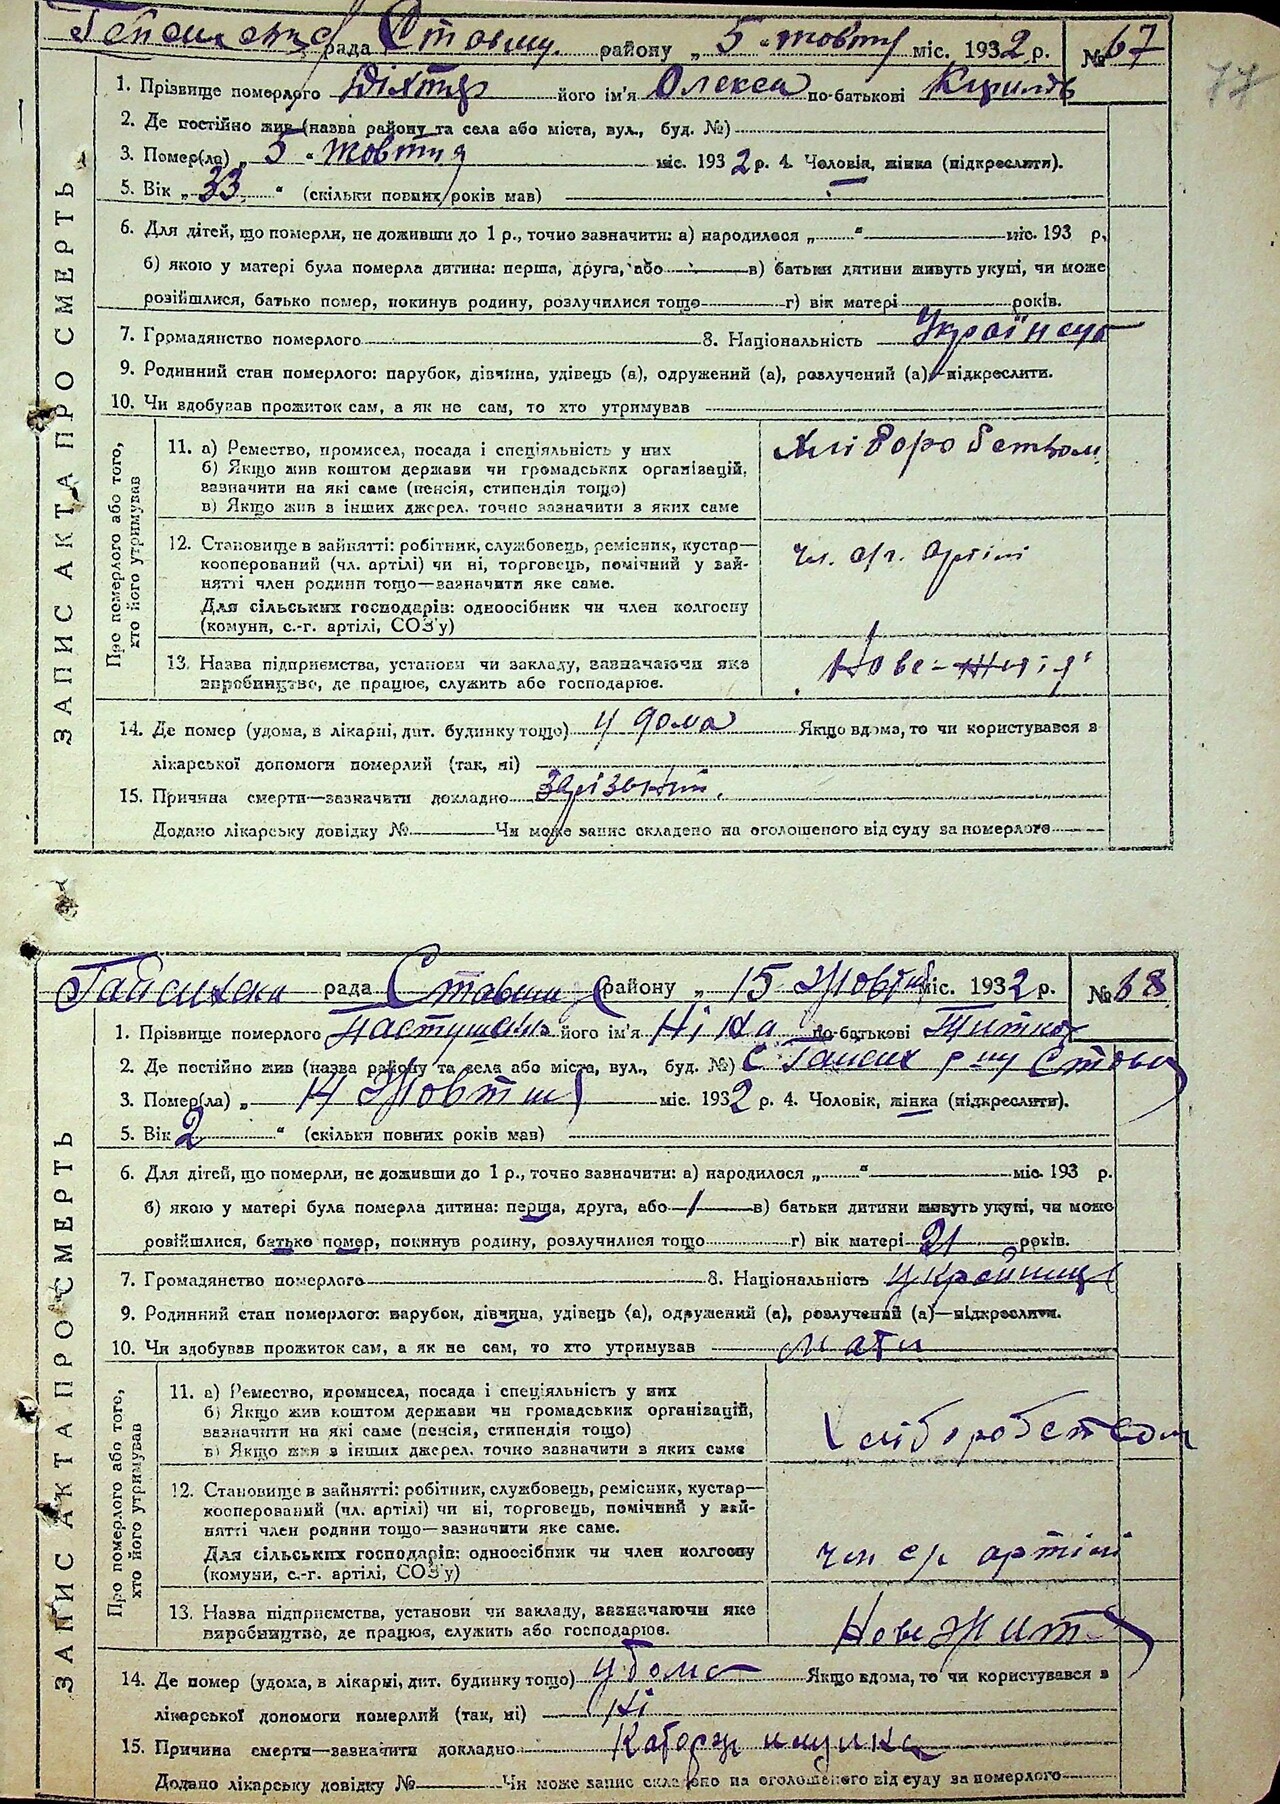 рада Ставищ. району „ 5 “ жовтня міс. 1932 р. № 67
77
ЗАПИС АКТА ПРО СМЕРТЬ
1. Прізвище померлого Діхтяр його ім'я Олекса по-батькові
2. Де постійно жив (назва району та села або міста, вул., буд. №)
3. Помер(ла) „ 5 “ жовтня міс. 1932 р. 4. Чоловік, жінка (підкреслити).
5. Вік „ 33 “ (скільки повних років мав)
6. Для дітей, що померли, не доживши до 1 р., точно зазначити: а) народилося „ “ міс. 193 р.
б) якою у матері була померла дитина: перша, друга, або в) батьки дитини живуть укупі, чи може
розійшлися, батько помер, покинув родину, розлучилися тощо г) вік матері років.
7. Громадянство померлого 8. Національність
9. Родинний стан померлого: парубок, дівчина, удівець (а), одружений (а), розлучений (а)—підкреслити.
10. Чи здобував прожиток сам, а як не сам, то хто утримував
Про померлого або того,
хто його утримував
11. а) Ремество, промисел, посада і спеціяльність у них
б) Якщо жив коштом держави чи громадських організацій,
зазначити на які саме (пенсія, стипендія тощо)
в) Якщо жив з інших джерел, точно зазначити з яких саме
Хліборобством
12. Становище в зайнятті: робітник, службовець, ремісник, кустар—
кооперований (чл. артілі) чи ні, торговець, помічний у зай-
нятті член родини тощо—зазначити яке саме.
Для сільських господарів: одноосібник чи член колгоспу
(комуни, с.-г. артілі, СОЗ'у)
чл. с/г. артілі
13. Назва підприємства, установи чи закладу, зазначаючи яке
виробництво, де працює, служить або господарює.
14. Де помер (удома, в лікарні, дит. будинку тощо) у дома Якщо вдома, то чи користувався з
лікарської допомоги померлий (так, ні)
15. Причина смерти—зазначити докладно
Додано лікарську довідку № Чи може запис складено на оголошеного від суду за померлого
рада району „ 15 жовтня міс. 1932 р. № 68
ЗАПИС АКТА ПРО СМЕРТЬ
1. Прізвище померлого його ім'я Ніна по-батькові
2. Де постійно жив (назва району та села або міста, вул., буд. №) с
3. Помер(ла) „ 14 жовтня міс. 1932 р. 4. Чоловік, жінка (підкреслити).
5. Вік 2 “ (скільки повних років мав)
6. Для дітей, що померли, не доживши до 1 р., точно зазначити: а) народилося „ “ міс. 193 р.
б) якою у матері була померла дитина: перша, друга, або в) батьки дитини живуть укупі, чи може
розійшлися, батько помер, покинув родину, розлучилися тощо г) вік матері 21 років.
7. Громадянство померлого 8. Національність
9. Родинний стан померлого: парубок, дівчина, удівець (а), одружений (а), розлучений (а)—підкреслити.
10. Чи здобував прожиток сам, а як не сам, то хто утримував мати
Про померлого або того,
хто його утримував
11. а) Ремество, промисел, посада і спеціяльність у них
б) Якщо жив коштом держави чи громадських організацій,
зазначити на які саме (пенсія, стипендія тощо)
в) Якщо жив з інших джерел, точно зазначити з яких саме
Хліборобством
12. Становище в зайнятті: робітник, службовець, ремісник, кустар—
кооперований (чл. артілі) чи ні, торговець, помічний у зай-
нятті член родини тощо—зазначити яке саме.
Для сільських господарів: одноосібник чи член колгоспу
(комуни, с.-г. артілі, СОЗ'у)
член с/г. артілі
13. Назва підприємства, установи чи закладу, зазначаючи яке
виробництво, де працює, служить або господарює.
Нове Життя
14. Де помер (удома, в лікарні, дит. будинку тощо) удома Якщо вдома, то чи користувався з
лікарської допомоги померлий (так, ні) ні
15. Причина смерти—зазначити докладно
Додано лікарську довідку № Чи може запис складено на оголошеного від суду за померлого